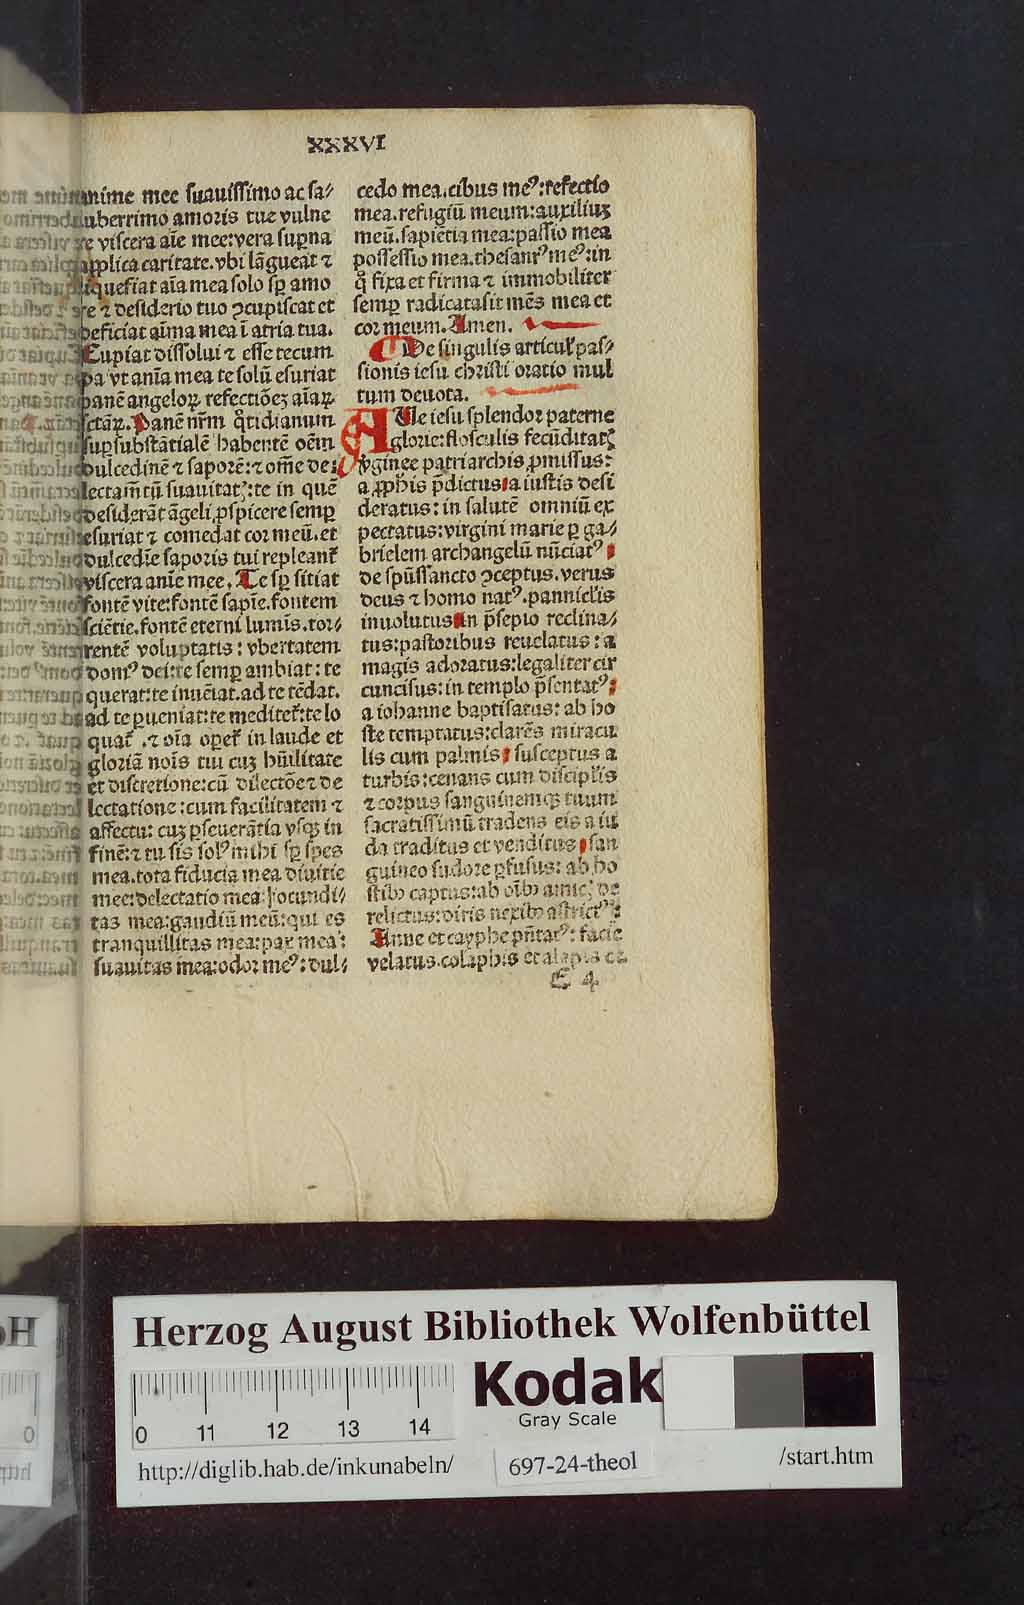 XXXVI
anime mee suauissimo ac sa/
uberrimo amoris tue vulne
re viscera aīe mee:vera suꝑna
applica caritate.vbi lāgueat ⁊
liquefiat aīa mea solo sꝑ amo
re ⁊ desiderio tuo ꝯcupiscat et
deficiat aīma mea ī atria tua.
Cupiat dissolui ⁊ esse tecum
Da vt anīa mea te solū esuriat
panē angeloꝝ refectiōeꝫ aīaꝝ
sctāꝝ.Panē nr̄m q̄tidianum
suꝑsubstātialē habentē oēm
dulcedinē ⁊ saporē:⁊ om̄e de/
lectam̄tū suauitatꝭ:te in quē
desiderāt āgeli ꝓspicere semꝑ
esuriat ⁊ comedat cor meū.et
dulcedīe saporis tui repleant᷑
viscera anīe mee. Te sꝑ sitiat
fontē vite:fontē sapīe.fontem
sciētie.fontē eterni lumīs.tor/
rentē voluptatis: vbertatem
domꝰ dei:te semꝑ ambiat: te
querat:te inuēiat.ad te tēdat.
ad te ꝑueniat:te meditet᷑:te lo
quat᷑ .⁊ oīa oꝑet᷑ in laude et
gloriā noīs tui cuꝫ hūilitate
et discretione:cū dilectōe⁊ de
lectatione:cum facilitatem ⁊
affectu: cuꝫ ꝑseuerātia vsqꝫ in
finē:⁊ tu sis solꝰ mihi sꝑ spes
mea.tota fiducia mea diuitie
mee:delectatio mea:iocundi/
tas mea:gaudiū meū:qui es
tranquillitas mea:pax mea:
suauitas mea:odor meꝰ: dul/
cedo mea.cibus meꝰ:refectio
mea.refugiū meum:auxiliuꝫ
meū.sapiētia mea:passio mea
possessio mea.thesaurꝰ meꝰ:in
q̄ fixa et firma ⁊ immobiliter
semꝑ radicata sit mēs mea et
cor meum. Amen.
De singulis articul᷑ pas/
sionis iesu christi oratio mul
tum deuota.
AUe iesu splendor paterne
glorie:flosculis fecūditatꝭ
v̄ginee patriarchis ꝓmissus:
a ꝓphis p̄dictus a iustis desi
deratus: in salutē omniū ex
pectatus:virgini marie ꝑ ga/
brielem archangelū nūciatꝰ
de spūssancto ꝯceptus.verus
deus ⁊ homo natꝰ.pannictis
inuolutus in p̄sepio reclina/
tus:pastoribus reuelatus: a
magis adoratus:legaliter cir
cuncisus:in templo p̄sentatꝰ:
a iohanne baptisatus: ab ho
ste temptatus:clarēs miracu
lis cum palmis susceptus a
turbis:cenans cum discipl̄is
⁊ corpus sanguinemqꝫ tuum
sacratissimū tradens eis a iu
da traditus et venditus san
guineo sudore ꝑfusus: ab ho
stibꝰ captus:ab oībꝰ amicꝭ de
relictus:diris nexibꝰ astrictꝰ:
Anne et cayphe pn̄tatꝰ: facie
velatus.colaphis et alapis ce
E 4
Herzog August Bibliothek Wolfenbüttel
0 11 12 13 14
Kodak
Gray Scale
http://diglib.hab.de/inkunabeln/
697-24-theol
/start.htm